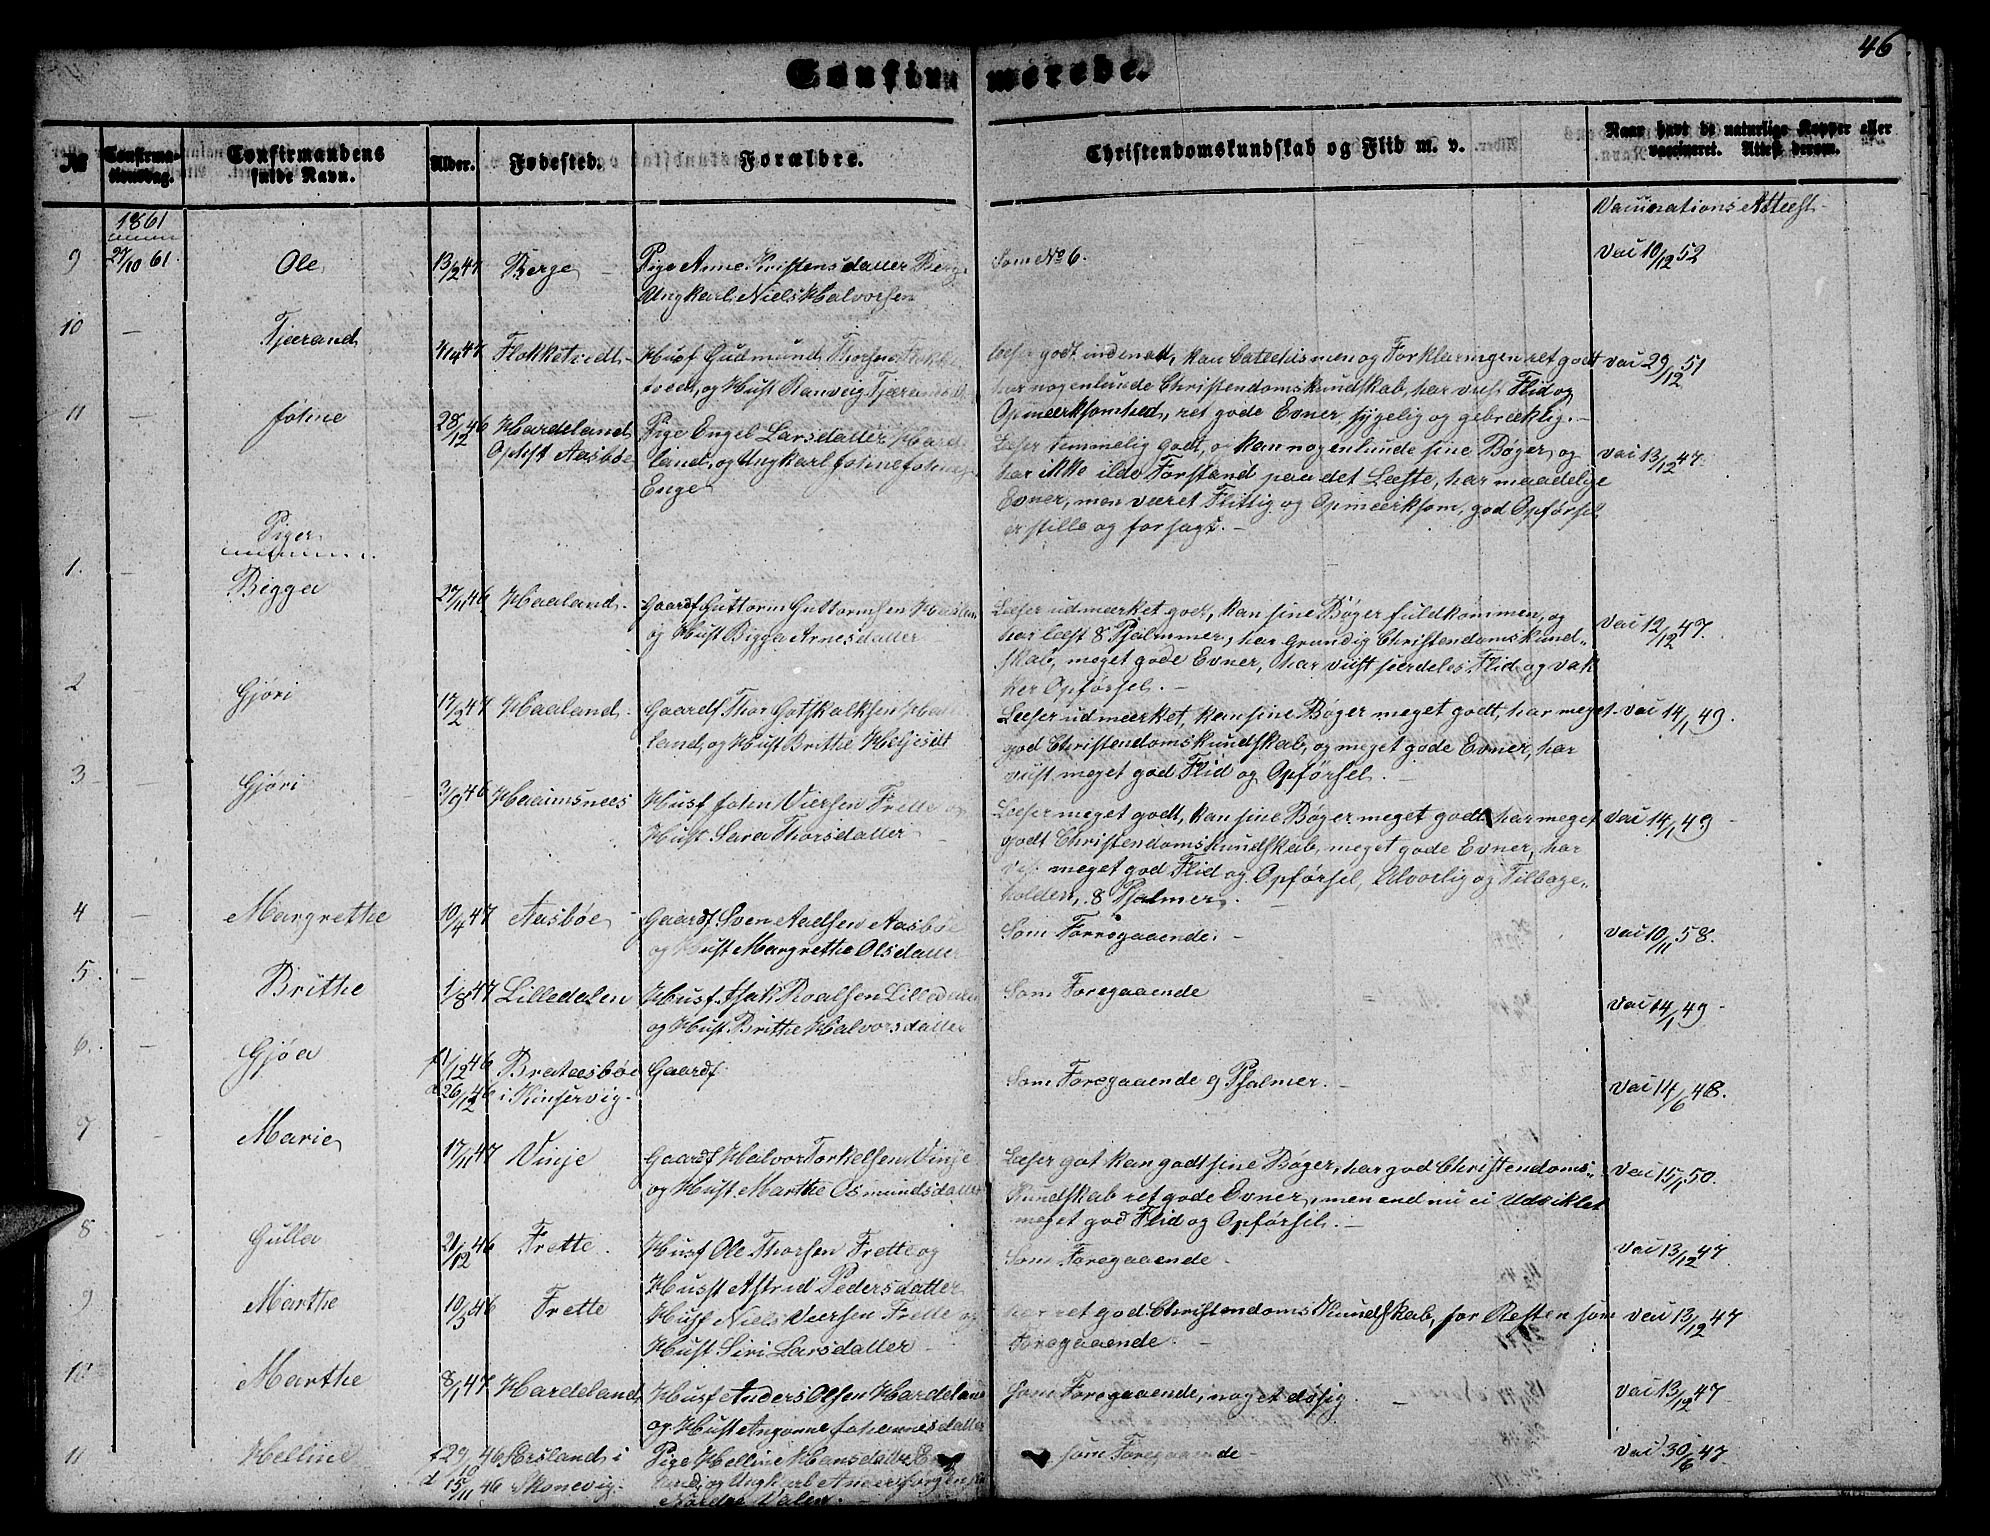 46.
Confirmerede.
№
Confirma-
tionsdag.
Confirmandens
fulde Navn.
Alder.
Fødested.
Forældre.
Christendomskundskab og Flid m. v.
Naar havt de naturlige Kopper eller
vaccineret. Attest derom.
1861
Vaccinations Attest
9 27/10 61. Ole 13/2 47 Berge Pige Anne Kristensdatter Berge Som No 6. Vac 10/12 52
Ungkarl Niels Halvorsen
10 Tjærand 4/4 47 Flokketvedt Husf Gudmund Thorsen Læser godt indenad, kan Catechismen og Forklaringen ret godt vac 29/12 51
og Hust Ranveig Tjærandsd har nogenlunde Christendomskundskab, har viist Flid og
Opmærksomhed, ret gode Evner, sygelig og gebræklig.
11 Johne 28/12 46 Hardeland Pige Engel Larsdatter Harde Læser temmelig godt, og kan nogenlunde sine Bøger, og vac 13/12 47.
Ophst Aasbøe land, og Ungkarl Johne Johne har ikke ilde Forstand paa det Læste, har maadelige
Enge Evner, men været Flittig og Opmærksom, god Opførsel,
er stille og forsagt.
Piger
1. Bigga 27/11 46 Haaland Gaardf Guttorm Guttormsen Haaland Læser udmærket godt, kan sine Bøger fuldkommen, og vac 12/12 47.
og Hust Bigga Arnesdatter har læst 8 Psalmmer, har Grundig Christendomskund-
skab, meget gode Evner, har viist særdeles Flid og vak
ker Opførsel.
2 Gjøri 17/2 47 Haaland Gaardf Thor Gotskalksen Haa Læser udmærket, kan sine Bøger meget godt, har meget vac 14/1 49.
land, og Hust Brithe Heljesdt god Christendomskundskab, og meget gode Evner, har
viist meget god Flid og Opførsel.
3 Gjøri 3/9 46 Haaimsnees Husf John Viersen Frette og Læser meget godt, kan sine Bøger meget godt, har meget vac 14/1 49
Hust Sara Thorsdatter godt Christendomskundskab, meget gode Evner, har
meget god Flid og Opførsel, Alvorlig og Tilbage-
holden, 8 Psalmer.
4 Margrethe 10/4 47 Aasbøe Gaardf Sven Aadsen Aasbøe Som Forregaaende. vac 10/11 58.
og Hust Margrethe Olsdatter
5. Brithe 1/8 47 Lilledalen Husf Isak Roalsen Lilledalen Som Foregaaende vac 14/1 49
og Hust Brithe Halvorsdatter
6. Gjøa f 1/12 46 Brataasbøe Gaardf Som Foregaaende 9 Psalmer. vac 14/6 48.
d 26/12 46 i Kinservig
7 Marie 17/11 47 Vinje Gaardf Halvor Torkelsen Vinje Læser got kan godt sine Bøger, har god Christendoms- vac 15/1 50.
og Hust Marthe Osmundsdatter kundskab ret gode Evner, men end nu ei Udviklet
meget god Flid og Opførsel.
8 Gulla 21/12 46 Frette Husf Ole Thorsen Frette og Som Foregaaende vac 13/12 47
Husst Astrid Pedersdatter
9 Marthe 10/5 46 Frette Husf Niels Viersen Frette og har ret god Christendoms Kundskab, for Resten som vac 13/12 47
Hust Siri Larsdatter Foregaaende
10 Marthe 8/1 47 Hardeland Husf Anders Olsen Hardeland Som Foregaaende, noget døsig. vac 13/12 47
og Hust Johannesdatter
11 Helline f 29/10 46 i Pige Helline Hansdatter som Foregaaende vac 30/6 47
d 15/11 46 Skonevig. og Ungkarl